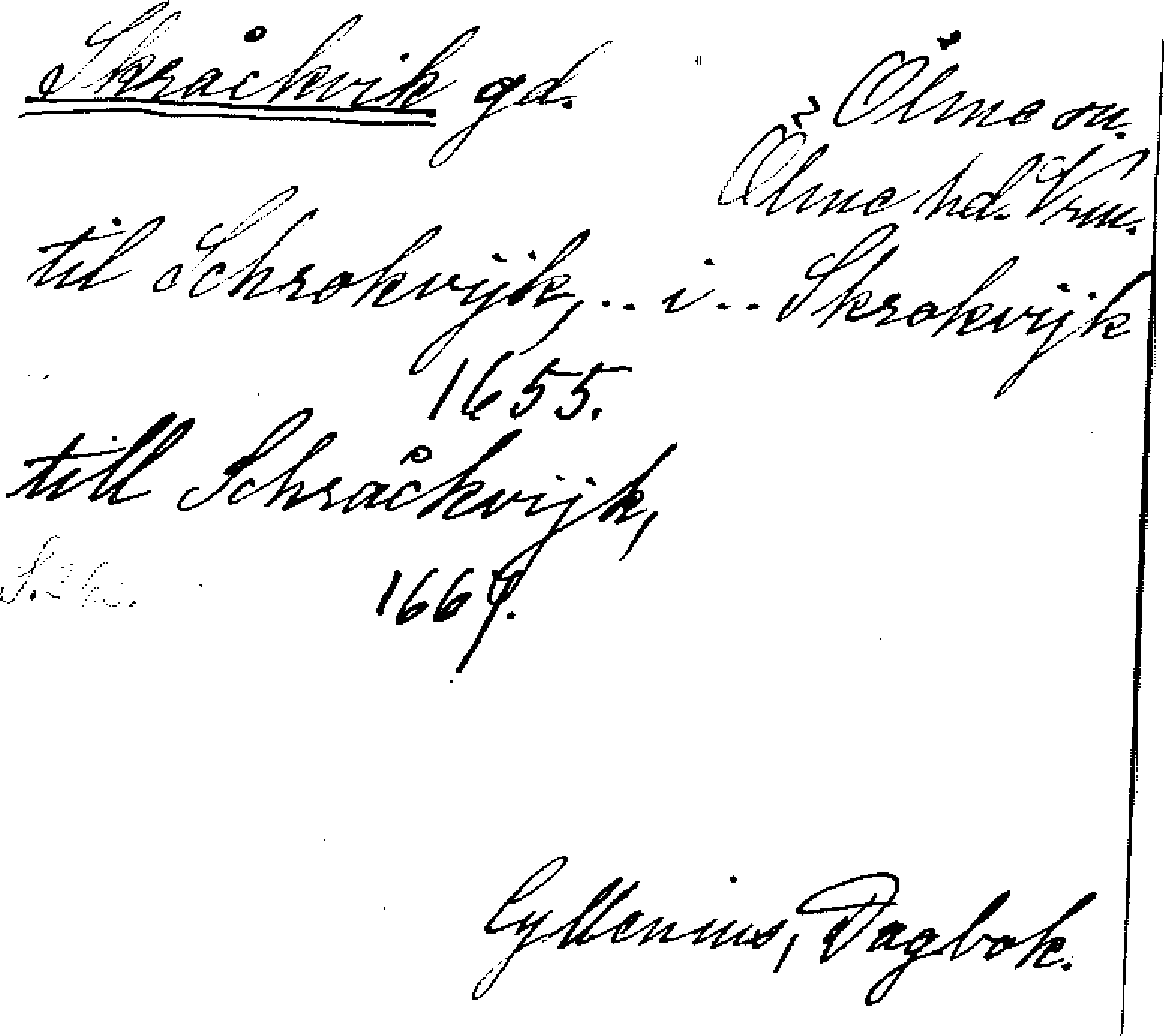 Skråckvik gd.
Ölme sn.
Ölme hd. Vrm.
til Schrokvijk, .. i .. Skrokvijk
1655.
till Schråckvijk,
1667.
Gyllenius, Dagbok.